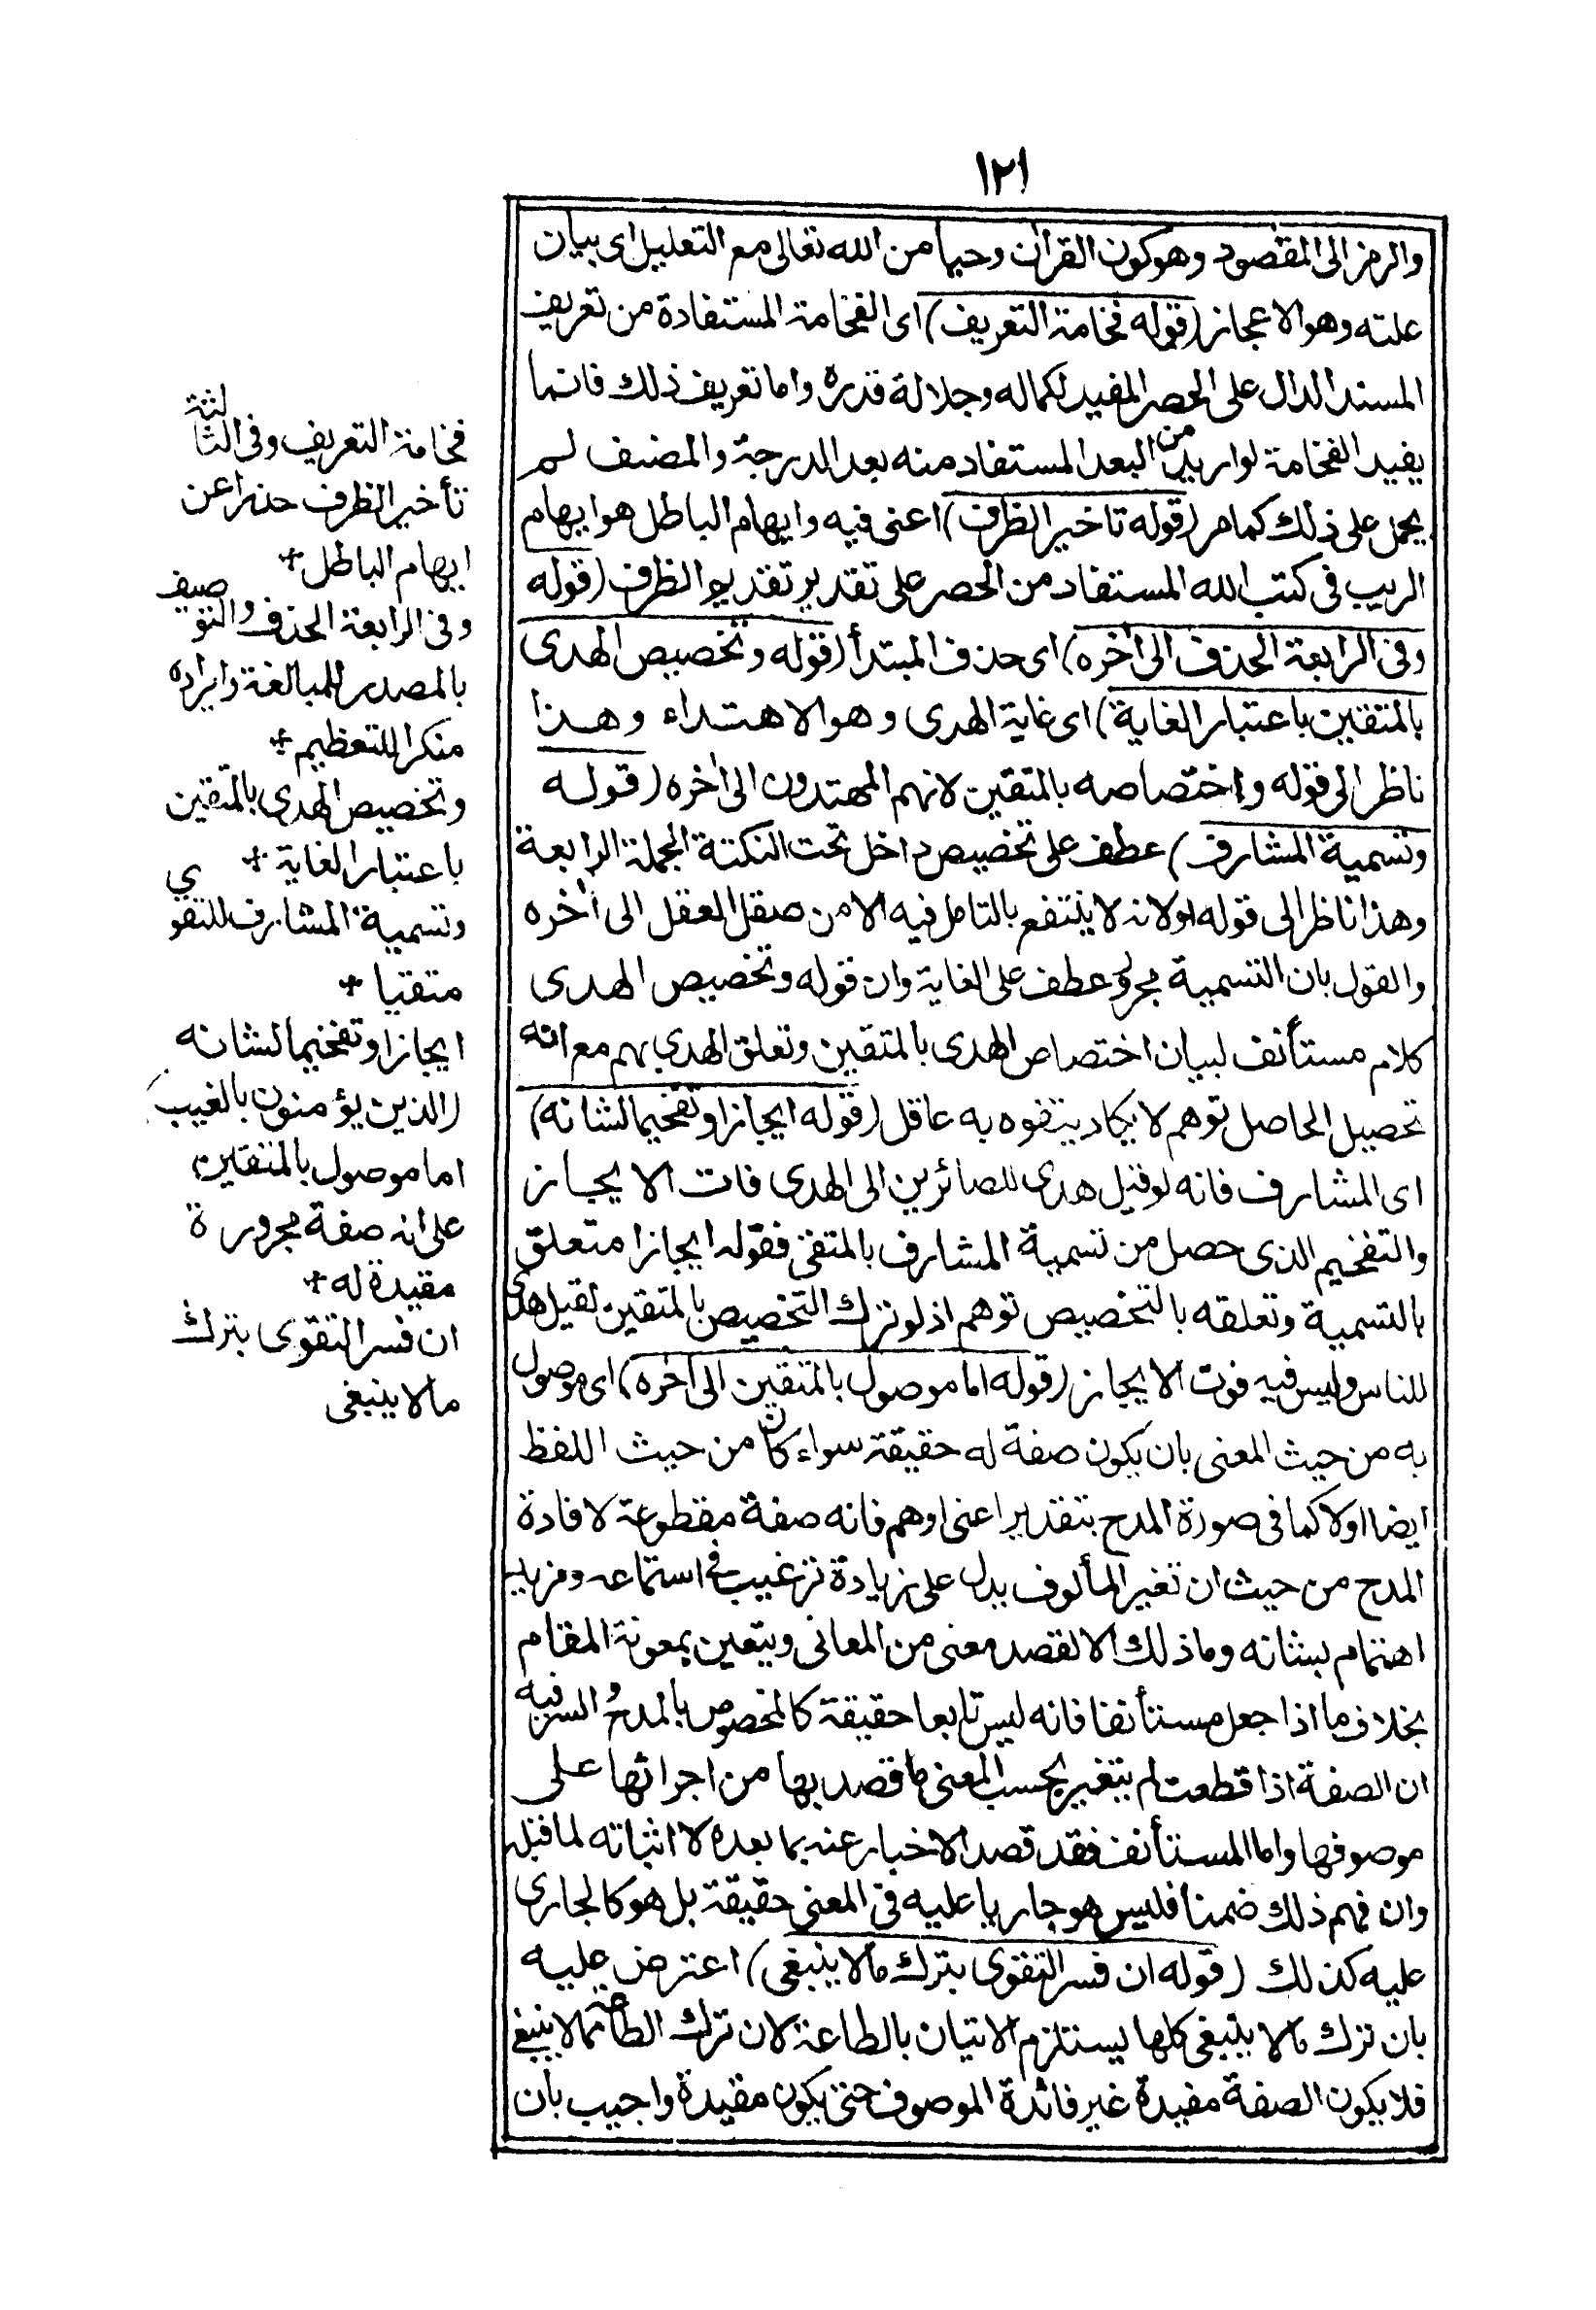 ١٢١
والرمز الى المقصود وهو كون القرآن وحيا من الله تعالى مع التعليل اى بيان
علته وهو الاعجاز (قوله فخامة التعريف) اى الفخامة المستفادة من تعريف
المسند الدال على الحصر المفيد لكماله وجلالة قدره واما تعريف ذلك فانما
يفيد الفخامة لو اريد من البعد المستفاد منه بعد الدرجة والمصنف لم
يحمل على ذلك كما مر (قوله تاخير الظرف) اعنى فيه وايهام الباطل هو ايهام
الريب فى كتب الله المستفاد من الحصر على تقدير تقديم الظرف (قوله
وفى الرابعة الحذف الى آخره) اى حذف المبتدأ (قوله وتخصيص الهدى
بالمتقين باعتبار الغاية) اى غاية الهدى وهو الاهتداء وهذا
ناظر الى قوله واختصاصه بالمتقين لانهم المهتدون الى آخره (قوله
وتسمية المشارف) عطف على تخصيص داخل تحت النكتة الجملة الرابعة
وهذا ناظر الى قوله اولانه لا ينتفع بالتامل فيه الا من صقل العقل الى آخره
والقول بان التسمية مجرور عطف على الغاية وان قوله وتخصيص الهدى
كلام مستأنف لبيان اختصاص الهدى بالمتقين وتعلق الهدى بهم مع انه
تحصيل الحاصل توهم لا يكاد يتفوه به عاقل (قوله ايجازا وتفخيما لشانه)
اى المشارف فانه لو قيل هدى للصائرين الى الهدى فات الايجاز
والتفخيم الذى حصل من تسمية المشارف بالمتقى فقوله ايجازا متعلق
بالتسمية وتعلقه بالتخصيص توهم اذ لو ترك التخصيص بالمتقين لقيل هدى
للناس وليس فيه فوت الايجاز (قوله اما موصول بالمتقين الى آخره) اى موصول
به من حيث المعنى بان يكون صفة له حقيقة سواء كان من حيث اللفظ
ايضا اولا كما فى صورة المدح بتقدير اعنى او هم فانه صفة مقطوعة لافادة
المدح من حيث ان تغير المألوف يدل على زيادة ترغيب فى استماعه ومزيد
اهتمام بشانه وما ذلك الا لقصد معنى من المعانى ويتعين بمعونة المقام
بخلاف ما اذا جعل مستأنفا فانه ليس تابعا حقيقة كالمخصوص بالمدح والسر فيه
ان الصفة اذا قطعت لم يتغير بحسب المعنى ما قصد بها من اجرائها على
موصوفها واما المستأنف فقد قصد الاخبار عنه بما بعده لا اثباته لما قبله
وان فهم ذلك ضمنا فليس هو جاريا عليه فى المعنى حقيقة بل هو كالجارى
عليه كذلك (قوله ان فسر التقوى بترك مالا ينبغى) اعترض عليه
بان ترك مالا ينبغى كلها يستلزم الاتيان بالطاعة لان ترك الطاعة مما لا ينبغى
فلا يكون الصفة مفيدة غير فائدة الموصوف حتى يكون مقيدة واجيب بان
فخامة التعريف وفى الثالثة
تأخير الظرف حذرا عن
ايهام الباطل +
وفى الرابعة الحذف والتوصيف
بالمصدر للمبالغة وايراده
منكرا للتعظيم +
وتخصيص الهدى بالمتقين
باعتبار الغاية +
وتسمية المشارف للتقوى
متقيا +
ايجازا وتفخيما لشانه
(الذين يؤمنون بالغيب)
اما موصول بالمتقين
على انه صفة مجرورة
مقيدة له +
ان فسر التقوى بترك
مالا ينبغى